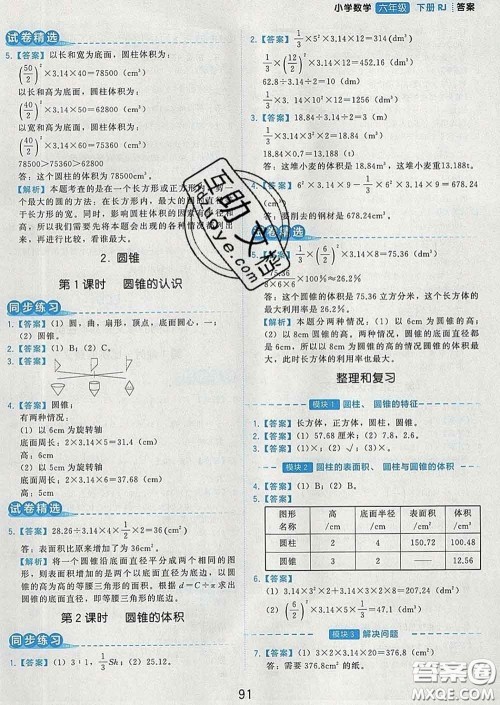 小学数学 六年级 下册 RJ 答案
试卷精选
5.【答案】以长和宽为底面，圆柱体积为：
(50/2)²×3.14×40=78500（cm³）
以长和高为底面，圆柱体积为：
(40/2)²×3.14×50=62800（cm³）
以宽和高为底面，圆柱体积为：
(40/2)²×3.14×60=75360（cm³）
78500>75360>62800
答：这个圆柱的体积为78500cm³。
【解析】本题考查的是在一个长方形或正方形内，剪一
个最大的圆的方法：在长方形内，最大的
圆的直径等于宽。同时，影响圆柱体积的因素有底面积和高，
所以我们需要先将本题会出现的各种情况都列出
来，再进行比较，看谁最大。
2. 圆锥
第1课时 圆锥的认识
同步练习
1.【答案】（1）圆，曲，扇形，顶点，底面圆心，一；
（2）圆锥。
2.【答案】（1）B；（2）C。
3.【答案】
4.【答案】圆锥：
有两种情况：
（1）以5cm为旋转轴
底面周长：2×3.14×5=31.4（cm）
高：5cm
（2）以6cm为旋转轴
底面周长：2×3.14×6=37.68（cm）
高：6cm
试卷精选
5.【答案】28.26÷3.14×4×1/2×2=36（dm²）
答：表面积比原来增加了36dm²。
【解析】将一个圆锥沿底面直径平分成两个相同的图
形，则表面积增加的是两个以底面直径为底边，以圆
锥的高为高的等腰三角形的面积。根据d=C÷π求出
圆锥底面直径，即等腰三角形的底。
第2课时 圆锥的体积
同步练习
1.【答案】（1）3：1，1/3Sh；（2）25.12。
2.【答案】1/3×5²×3.14×12=314（cm³）
1/3×(12/2)²×3.14×10=376.8（cm³）
62.8÷3.14÷2=10（cm）
1/3×3.14×10²×12=1256（cm³）
3.【答案】18.84÷3.14÷2=3（m）
1/3×3.14×3²×2=18.84（m³）
18.84×0.7=13.188（t）
答：这堆小麦的体积是18.84m³，这堆小麦重13.188t。
4.【答案】6²×3.14×9－1/3×6²×3.14×9=678.24
（cm³）
答：要削去的钢材是678.24cm³。
试卷精选
×100%≈26.2%
答：这个圆锥的体积是75.36立方分米，这个长方体的
最大利用率是26.2%。
【解析】本题分两种情况：（1）以6cm为圆锥的高；
（2）以8cm为圆锥的高。因为以8cm为圆锥的高的圆锥体积
最大，所以以8cm为圆锥的高的情况圆锥体积
最大，此时长方体的利用率也最大。
整理和复习
模块1 圆柱、圆锥的特征
1.【答案】长方体，正方体，圆柱，圆锥。
2.【答案】（1）57.68 厘米；（2）2，3。
3.【答案】（1）×；（2）√；（3）×；（4）×。
模块2 圆柱的表面积、圆柱与圆锥的体积
4.【答案】（1）B；（2）B。
5.【答案】
图形名称 高/cm 底面半径/cm 表面积/cm² 体积/cm³
圆柱 2 4 150.72 100.48
圆锥 3 2 — 12.56
6.【答案】（1）2²×3.14×6=75.36（dm³）
（2）(6/2)²×3.14×2×1/3=18.84（dm³）
模块3 解决问题
7.【答案】（1）3×2×3.14×20=376.8（cm²）
答：至少需要376.8cm²的纸。
91
互助文档
hdzuoye.com
答案圈
MXQE.COM